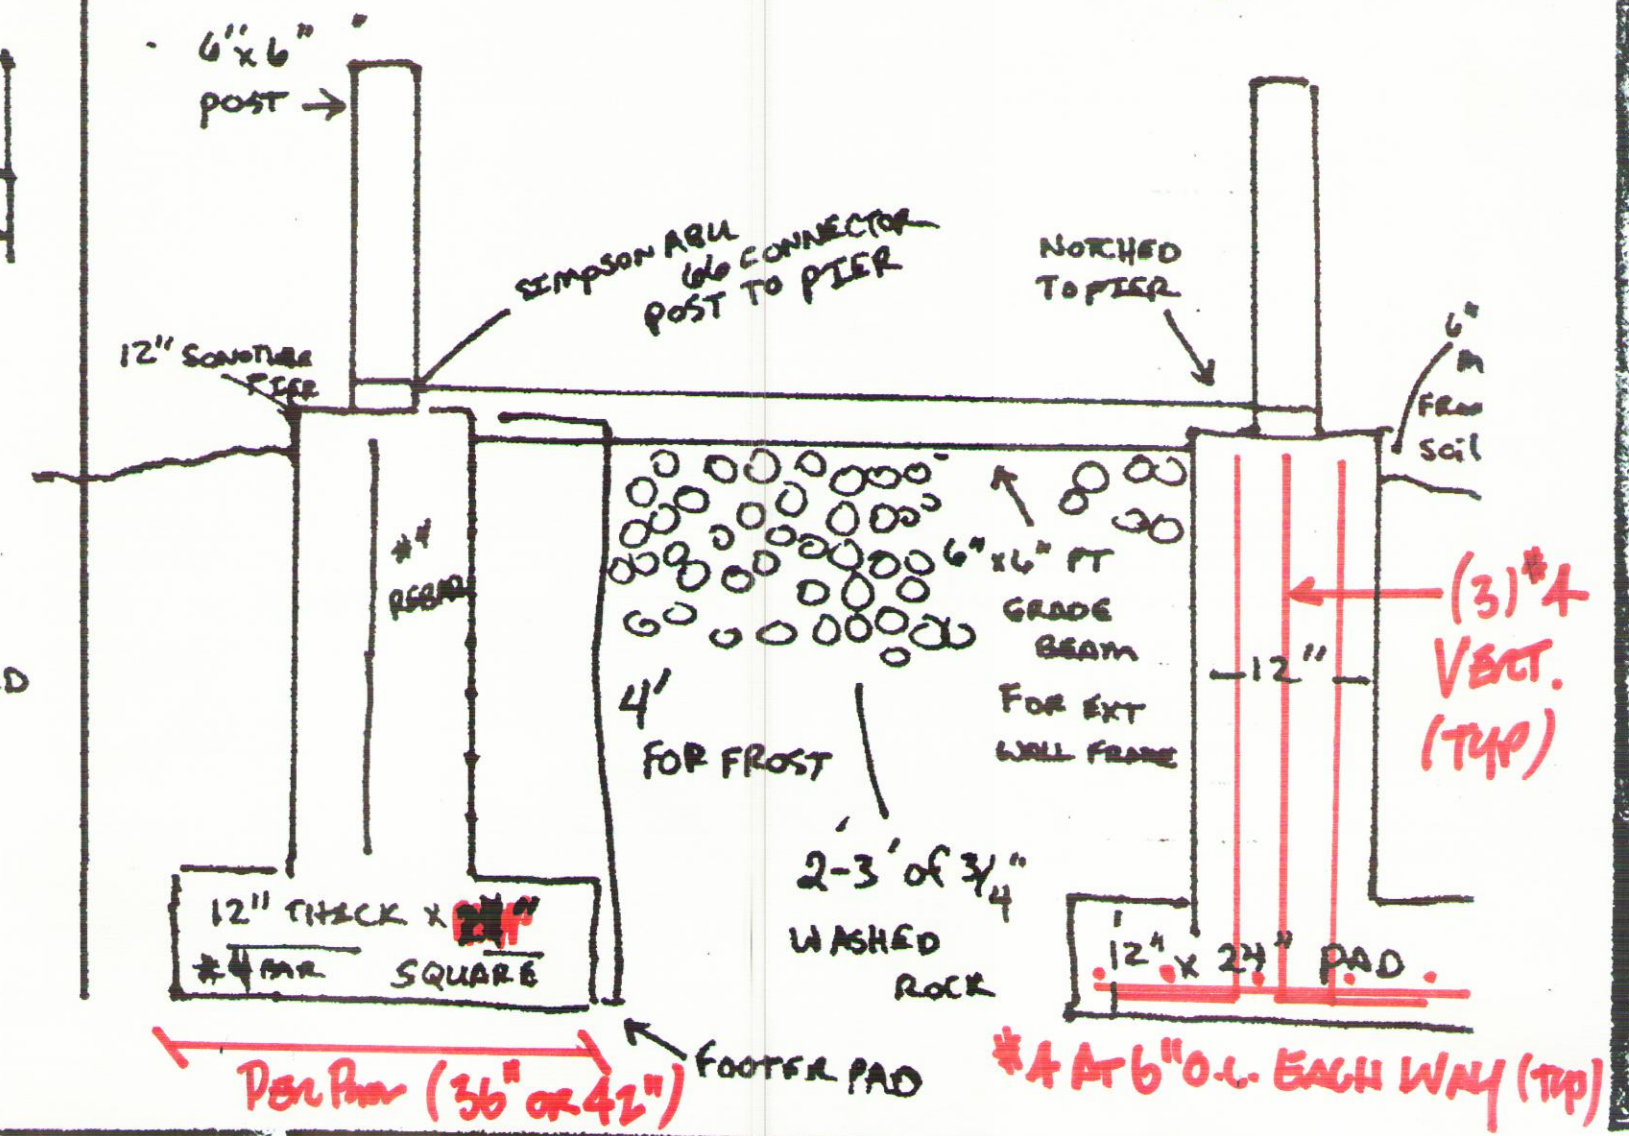 6"x6"
POST
SIMPSON ABU
66 CONNECTOR
POST TO PIER
NOTCHED
TO PIER
12" SONOTUBE
PIER
6"
M
FRO
SOIL
#4
REBAR
6"x6" PT
GRADE
BEAM
FOR EXT
WALL FRAME
(3) #4
VERT.
(TYP)
12"
4'
FOR FROST
2-3' of 3/4"
WASHED
ROCK
12" THICK x
#4 BAR SQUARE
12" x 24" PAD
FOOTER PAD
#4 AT 6" O.C. EACH WAY (TYP)
PER PLAN (36" OR 42")
D